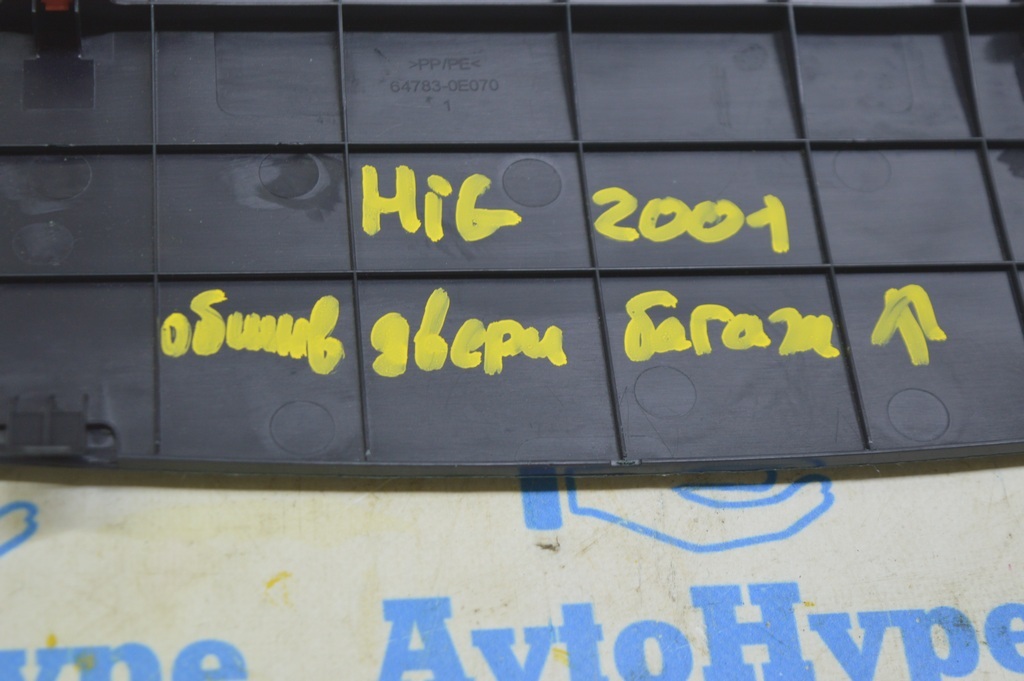 >PP/PE<
64783-0E070
1
HiG 2001
обшив двери багаж ↑
ype AvtoHype